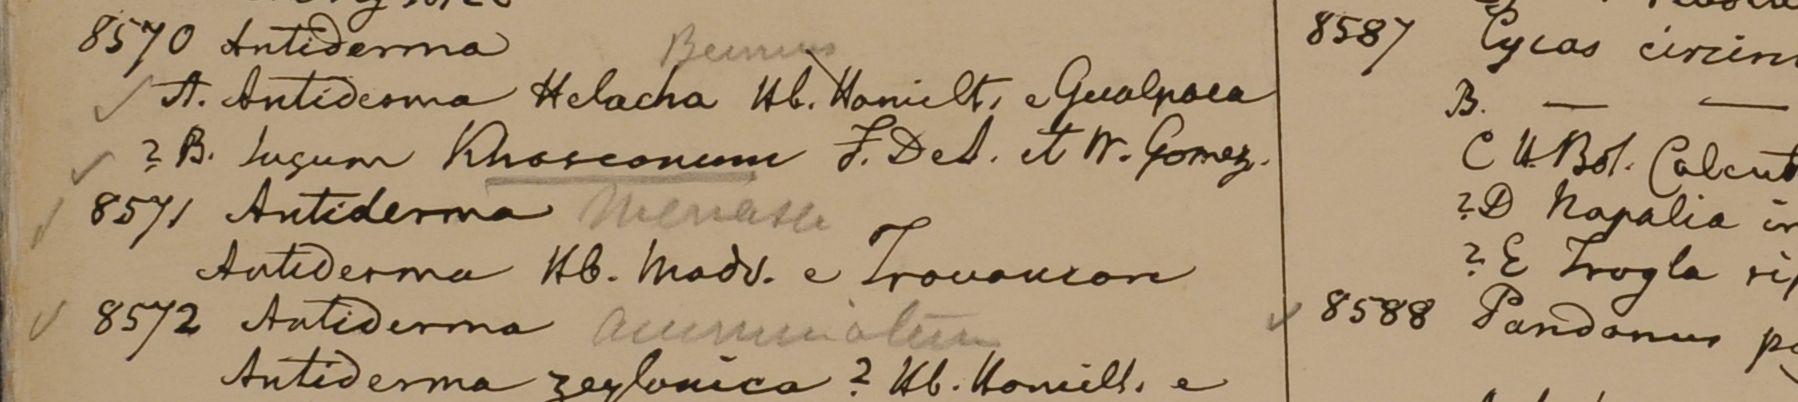 8570 Antiderma Bunius
A. Antidesma Helacha Hb. Hamilt. e Gualpara
? B. Jugum Khaseanum F. De S. et W. Gomez.
8571 Antiderma Menasu
Antiderma Hb. Madr. e Travancore
8572 Antiderma acuminatum
Antiderma zeylanica ? Hb. Hamilt. e
8587 Cycas circin
B. — —
C H. Bot. Calcut
? D Napalia in
? E Trogla
8588 Pandanus